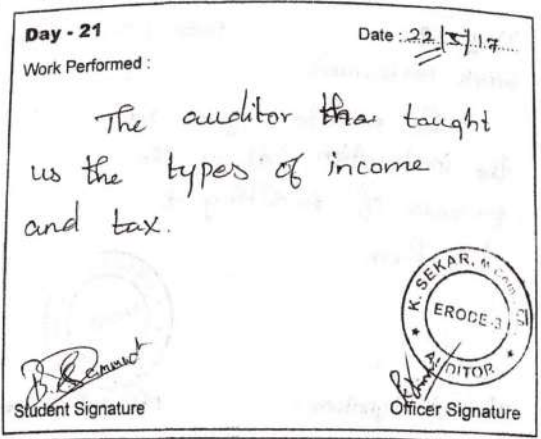 Day - 21
Date : 22/5/17
Work Performed :
The auditor thas taught
us the types of income
and tax.
K. SEKAR, M.Com.,
ERODE-3
AUDITOR
Student Signature
Officer Signature